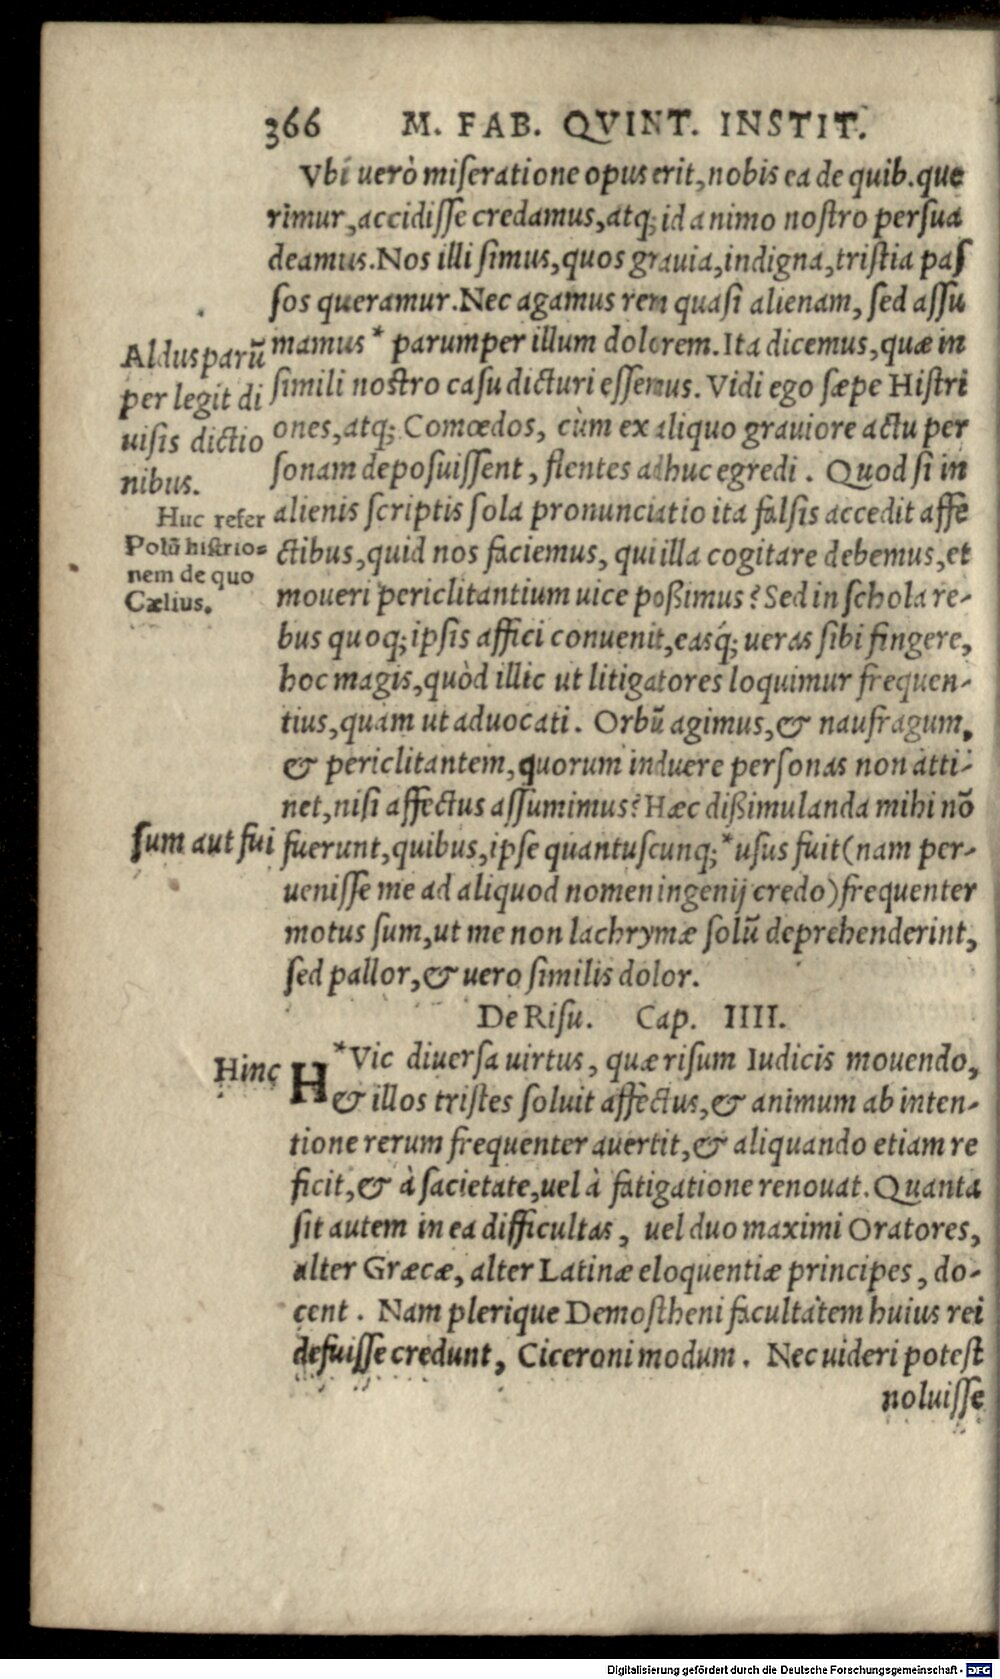 366 M. FAB. QVINT. INSTIT.
Vbi uerò miseratione opus erit, nobis ea de quib. que
rimur, accidisse credamus, atq; id animo nostro persua
deamus. Nos illi simus, quos grauia, indigna, tristia pas
sos queramur. Nec agamus rem quasi alienam, sed assu
mamus * parumper illum dolorem. Ita dicemus, quæ in
simili nostro casu dicturi essemus. Vidi ego sæpe Histri
ones, atq; Comœdos, cùm ex aliquo grauiore actu per
sonam deposuissent, flentes adhuc egredi. Quod si in
alienis scriptis sola pronunciatio ita falsis accedit affe
ctibus, quid nos faciemus, qui illa cogitare debemus, et
moueri periclitantium uice poßimus? Sed in schola re-
bus quoq; ipsis affici conuenit, easq́; ueras sibi fingere,
hoc magis, quòd illic ut litigatores loquimur frequen-
tius, quam ut aduocati. Orbũ agimus, & naufragum,
& periclitantem, quorum induere personas non atti-
net, nisi affectus assumimus? Hæc dißimulanda mihi nõ
fuerunt, quibus, ipse quantuscunq; * usus fuit (nam per-
uenisse me ad aliquod nomen ingenij credo) frequenter
motus sum, ut me non lachrymæ solũ deprehenderint,
sed pallor, & uero similis dolor.
Aldus parũ
per legit di
uisis dictio
nibus.
Huc refer
Polũ histrio-
nem de quo
Cælius.
sum aut fui
De Risu. Cap. IIII.
Hinc
H*Vic diuersa uirtus, quæ risum Iudicis mouendo,
& illos tristes soluit affectus, & animum ab inten-
tione rerum frequenter auertit, & aliquando etiam re
ficit, & à sacietate, uel à fatigatione renouat. Quanta
sit autem in ea difficultas, uel duo maximi Oratores,
alter Græcæ, alter Latinæ eloquentiæ principes, do-
cent. Nam plerique Demostheni facultatem huius rei
defuisse credunt, Ciceroni modum. Nec uideri potest
noluisse
Digitalisierung gefördert durch die Deutsche Forschungsgemeinschaft - DFG